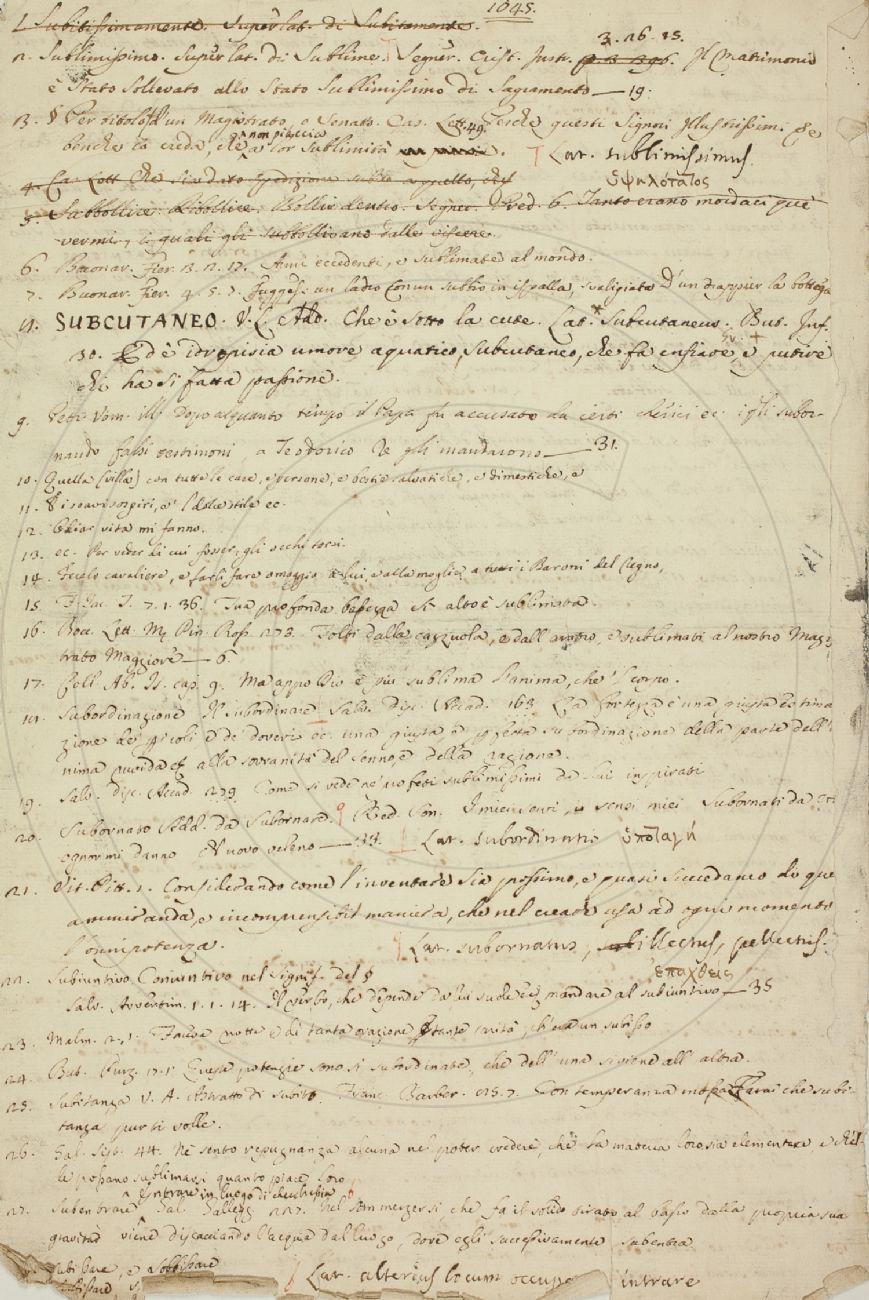 1645.
1. Subitissimamente. Superlat. di Subitamente.
3. 26. 15.
2. Sublimissimo. Superlat. di Sublime. Segner. Crist. Instr. Il Matrimonio
è stato sollevato allo stato sublimissimo di Sagramento — 19.
3. § Per titolo d'un Magistrato, o Senato. Cas. Lett. 49. Perchè questi Signori Illustrissimi
non piaccia
benchè io creda, che a lor Sublimità Lat. sublimissimus.
ὑψηλότατος
4. Cas. Lett.
5. Subbollire. Ribollire. Bollir dentro. Segner. Pred. 6. Tanto erano mordaci que'
vermi, i quali gli subbollivano dalle viscere.
6. Buonar. Fier. Ami eccedenti, e sublimate al mondo.
7. Buonar. Fier. 4. 5. 7. un ladro con un subbio in ispalla, svaligiata d'un drappier la bottega
8. SUBCUTANEO. V. L. Add. Che è sotto la cute. Lat. Subcutaneus. But. Inf.
30. Ed è idropisia umore aquatico, subcutaneo, che fa enfiare, e putire
chi ha sì fatta passione.
9. Petr. Uom. ill. Dopo alquanto tempo il Papa fu accusato da certi cherici ec. i quali subor-
nando falsi testimoni, a Teodorico Re gli mandarono — 31.
10. Quella (villa) con tutte le case, e persone, e bestie salvatiche, e dimestiche, e
11. E i soavi sospiri, e 'l dolce stile ec.
12. vita mi fanno.
13. ec. Per veder di cui fosser, gli occhi torsi.
14. Fecelo cavaliere, e fargli fare omaggio a lui, e alla moglie a tutti i Baroni del Regno,
15. F. Jac. T. 7. 1. 36. Tua profonda bassezza sì alto è sublimata.
16. Bocc. Lett. Pin. Ross. 273. Tolti dalla cazzuola, e dall'aratro, e sublimati al nostro Magi-
strato Maggiore — 6.
17. Coll. Ab. Is. cap. 9. Ma appo Dio è più sublima l'anima, che 'l corpo.
18. Subordinazione. Il subordinare. Salv. Disc. Accad. 163. La fortezza è una giusta estima-
zione de' pericoli e de' doveri ec. una giusta e perfetta subordinazione della parte dell'a-
nima alla sovranità del senno, e della ragione.
19. Salv. disc. Accad. 279. Come si vede ne' profeti sublimissimi da lui inspirati
20. Subornato Add. da Subornare. Red. Son. I miei sensi, i sensi miei subornati da
ognor mi danno nuovo veleno — 33. Lat. subordinatio ὑποταγή
21. Vit. Pitt. 1. Considerando come l'inventare sia prossimo, e quasi succedaneo di que
ammiranda, e incomprensibil maniera, che nel creare usa ad ogni momento
l'onnipotenza. Lat. subornatus, illectus, pellectus.
ἐπαχθείς
22. Subiuntivo. Coniuntivo nel signif. del §
Salv. Avvertim. 1. 1. 14. Il verbo, che depende da lui suole ec. mandare al subiuntivo — 35
23. Malm. 2. 1. notte e dì tanta orazione tanta carità, ch'era un subisso
24. But. Purg. 17. 1. Queste potenzie sono sì subordinate, che dell'una si viene all'altra.
25. Subitanza V. A. Astratto di subito. Franc. Barber. 215. 7. Con temperanza che subi-
tanza pur ti volle.
26. Gal. Sist. 44. Nè sento repugnanza alcuna nel poter credere, che la materia elementare, e ch'el-
le possano sublimarsi quanto piace loro
Entrare in luogo di checchessia
27. Subentrare. Gal. Gallegg. 227. Nel sommergersi che fa il solido tirato al basso dalla propria sua
gravità viene discacciando l'acqua dal luogo, dove egli successivamente subentra.
Subissare, e Sobbissare
Lat. alterius locum occupo intrare